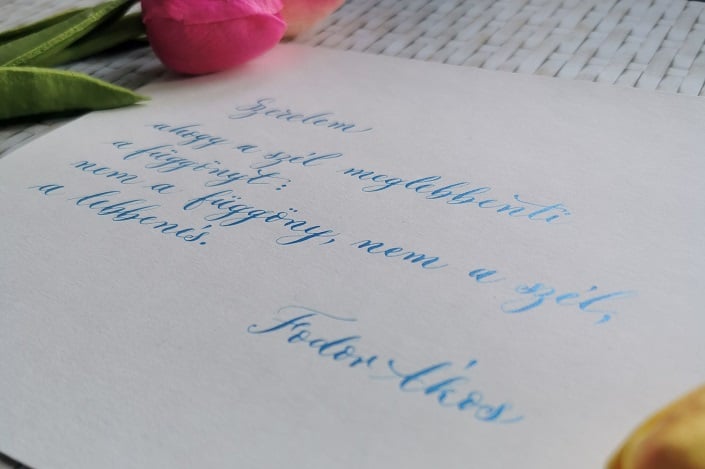 Szerelem
ahogy a szél meglebbenti
a függönyt:
nem a függöny, nem a szél,
a lebbenés.
Fodor Ákos